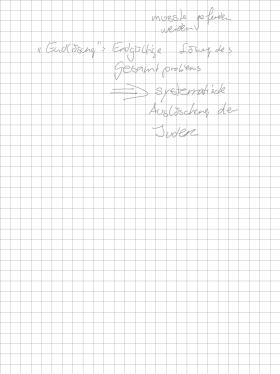 musste gefunden
werden
"Endlösung": Endgültige Lösung des
Gesamtproblems
=> systematische
Auslöschung der
Juden